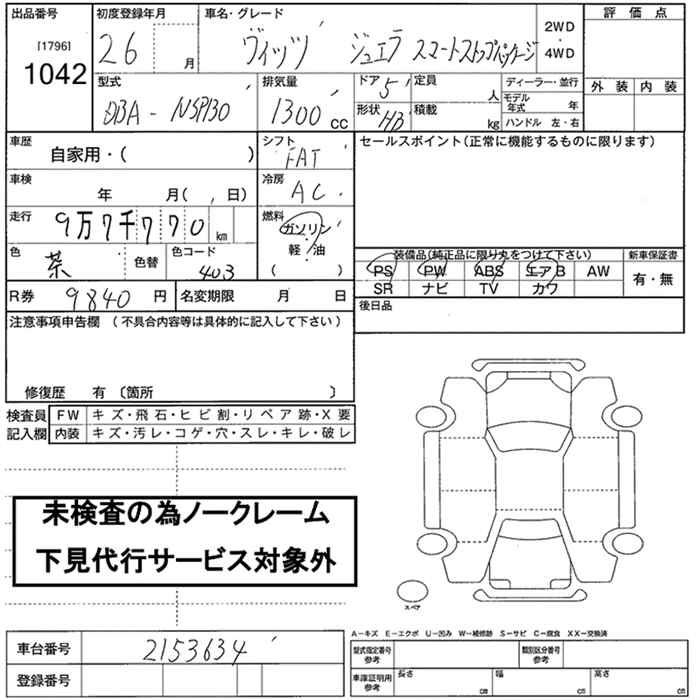 出品番号 初度登録年月 車名・グレード 2WD・4WD 評価点
[1796]
1042 26 月 ヴィッツ ジュエラ スマートストップパッケージ
型式 排気量 ドア 5 定員 人 ディーラー・並行 外装 内装
DBA-NSP130 1300 cc 形状 HB 積載 kg モデル年式 年
ハンドル 左・右
車歴 自家用・( ) シフト FAT セールスポイント(正常に機能するものに限ります)
車検 年 月( , 日) 冷房 AC
走行 9万7千770 km 燃料 ガソリン
軽・油
( )
色 茶 色替 色コード 403
装備品(純正品に限り丸をつけて下さい) 新車保証書
PS PW ABS エアB AW 有・無
SR ナビ TV カワ
R券 9840 円 名変期限 月 日 後日品
注意事項申告欄 (不具合内容等は具体的に記入して下さい)
修復歴 有 〔箇所 〕
検査員 FW キズ・飛石・ヒビ割・リペア跡・X要
記入欄 内装 キズ・汚レ・コゲ・穴・スレ・キレ・破レ
未検査の為ノークレーム
下見代行サービス対象外
スペア
A−キズ E−エクボ U−凹み W−補修跡 S−サビ C−腐食 XX−交換済
車台番号 2153634 型式指定番号 参考 類別区分番号 参考
登録番号 車庫証明用 参考 長さ cm 幅 cm 高さ cm